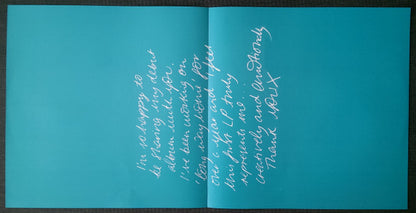 I'm so happy to
be sharing my debut
album with you.
I've been working on
'Long Way Home' for
over a year and I feel
this first LP truly
represents me...
creatively and emotionally
Thank you X